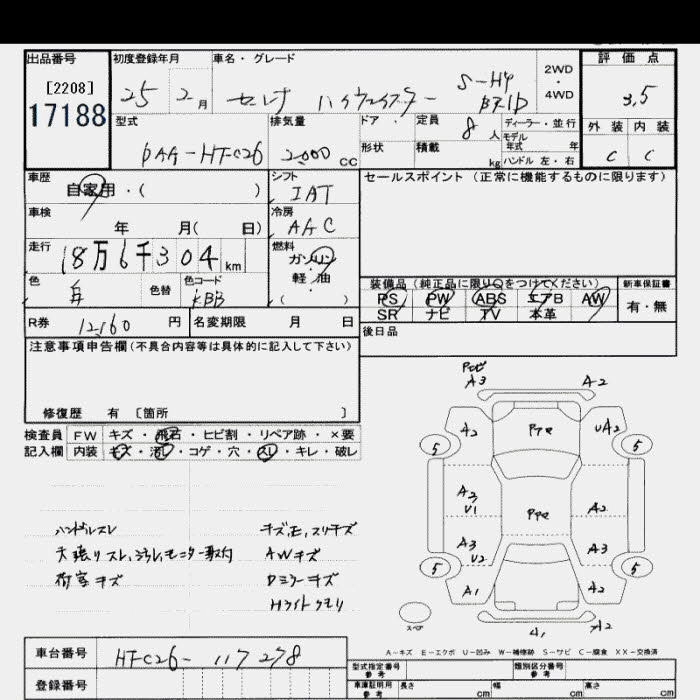 出品番号 初度登録年月 車名・グレード 2WD・4WD 評価点
[2208]
17188
25 2月 セレナ ハイウェイスター S-HY 3.5
型式 排気量 ドア・形状 定員 積載 ディーラー・並行 外装 内装
DAA-HFC26 2,000 CC 8人 kg モデル年式 年 C C
ハンドル 左・右
車歴 シフト セールスポイント(正常に機能するものに限ります)
自家用・( ) IAT
車検 冷房
年 月( 日) AAC
走行 燃料
18万6千304km ガソリン・軽油 ( )
色 色替 色コード 装備品(純正品に限り○をつけてください) 新車保証書
KBB PS PW ABS エアB AW 有・無
SR ナビ TV 本革
R券 12,160 円 名変期限 月 日 後日品
注意事項申告欄(不具合内容等は具体的に記入して下さい)
修復歴 有 〔箇所 〕
検査員記入欄 FW キズ・飛石・ヒビ割・リペア跡・×要
内装 キズ・汚れ・コゲ・穴・スレ・キレ・破レ
A3 A2
A2 UA2
5 5
A3 U1 A2
A3 U2 A3
5 5
A1 A2
A1 A2
スペア
ハンドルスレ
天張りスレ、汚れ、モニター取付
荷室キズ
AWキズ
Dミラーキズ
Hライトクモリ
A-キズ E-エクボ U-凹み W-補修跡 S-サビ C-腐食 XX-交換済
車台番号 HFC26-117278
登録番号
型式指定番号 参考 類別区分番号 参考
車庫証明用 参考 長さ cm 幅 cm 高さ cm